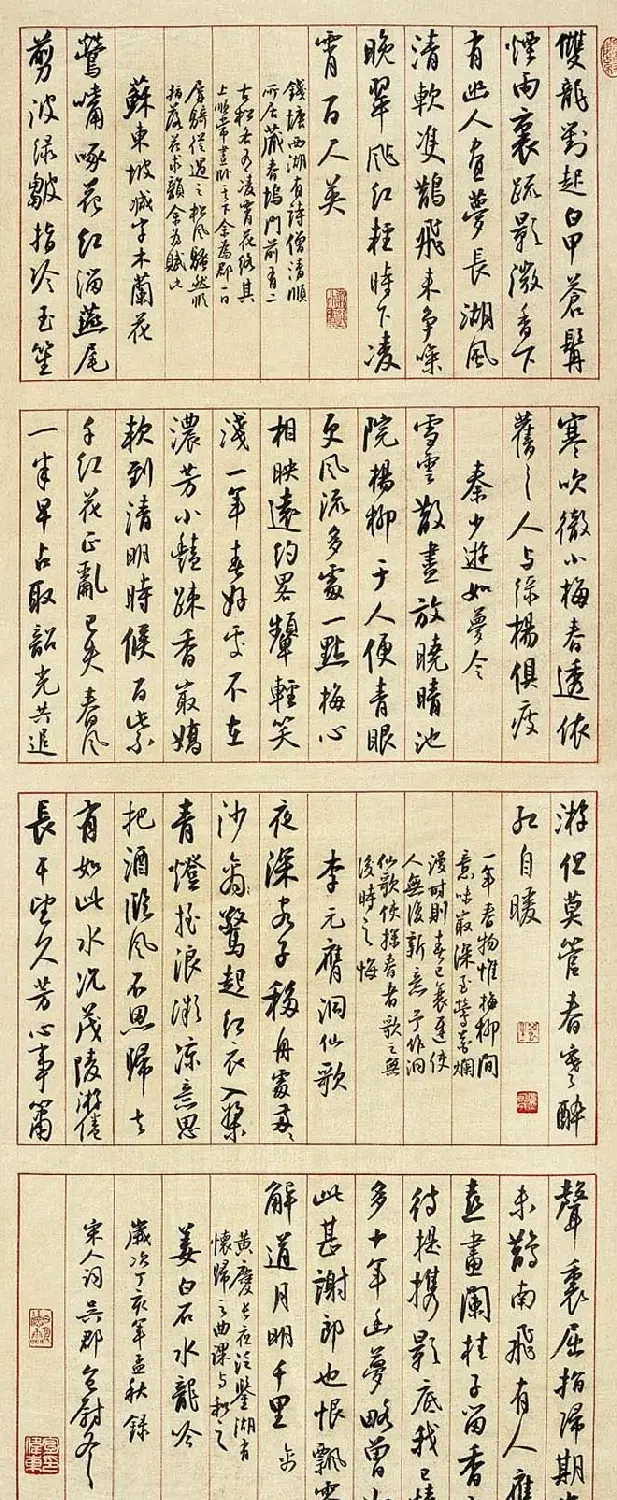 雙龍對起白甲蒼髯
煙雨裏疏影微香下
有幽人晝夢長湖風
清軟雙鵲飛來爭噪
晚翠颭紅輕時下凌
霄百尺英
錢塘西湖有詩僧清順
所居藏春塢門前有二
古松各有凌霄花絡其
上順常晝臥其下余為郡一日
屏騎從過之松風騷然順
指落花求韻余為賦此
蘇東坡減字木蘭花
鶯嘴啄花紅溜燕尾
剪波綠皺指冷玉笙
寒吹徹小梅春透依
舊〻人與綠楊俱瘦
秦少遊如夢令
雪雲散盡放曉晴池
院楊柳于人便青眼
更風流多處一點梅心
相映遠約畧顰輕笑
淺一年春好處不在
濃芳小豔疎香最嬌
軟到清明時候百紫
千紅花正亂已失春風
一半早占取韶光共追
游但莫管春寒醉
紅自暖
一年春物惟梅柳間
意味最深至鶯花爛
漫時則春已衰遲使
人無復新意予作洞
仙歌使探春者歌之無
後時之悔
李元膺洞仙歌
夜深客子移舟處兩〻
沙禽驚起紅衣入槳
青燈搖浪微涼意思
把酒臨風不思歸去
有如此水況茂陵游倦
長干望久芳心事簫
聲裏屈指歸期尚
未鵲南飛有人應
喜畫闌桂子留香
待提攜影底我已情
多十年幽夢略曾如
此甚謝郎也恨飄零
解道月明千里
黃慶長夜泛鑒湖有
懷歸之曲課予和之
姜白石水龍吟
歲次丁亥年孟秋錄
宋人詞吳郡